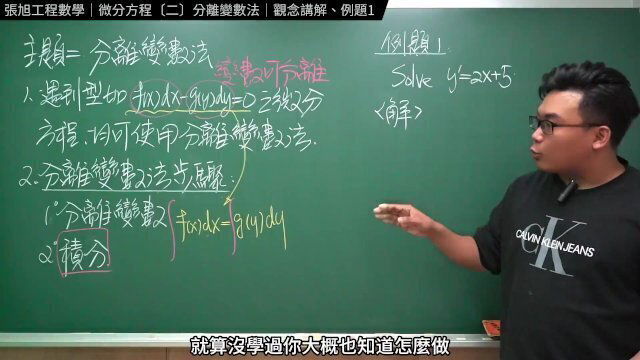 張旭工程數學｜微分方程〔二〕分離變數法｜觀念講解、例題1
主題二 分離變數法
變數可分離
1. 遇到型如 f(x)dx-g(y)dy=0 之微分
方程,均可使用分離變數法.
2. 分離變數法步驟:
1° 分離變數 ∫f(x)dx=∫g(y)dy
2° 積分
例題1.
Solve y'=2x+5.
<解>
CALVIN KLEIN JEANS
就算沒學過你大概也知道怎麼做